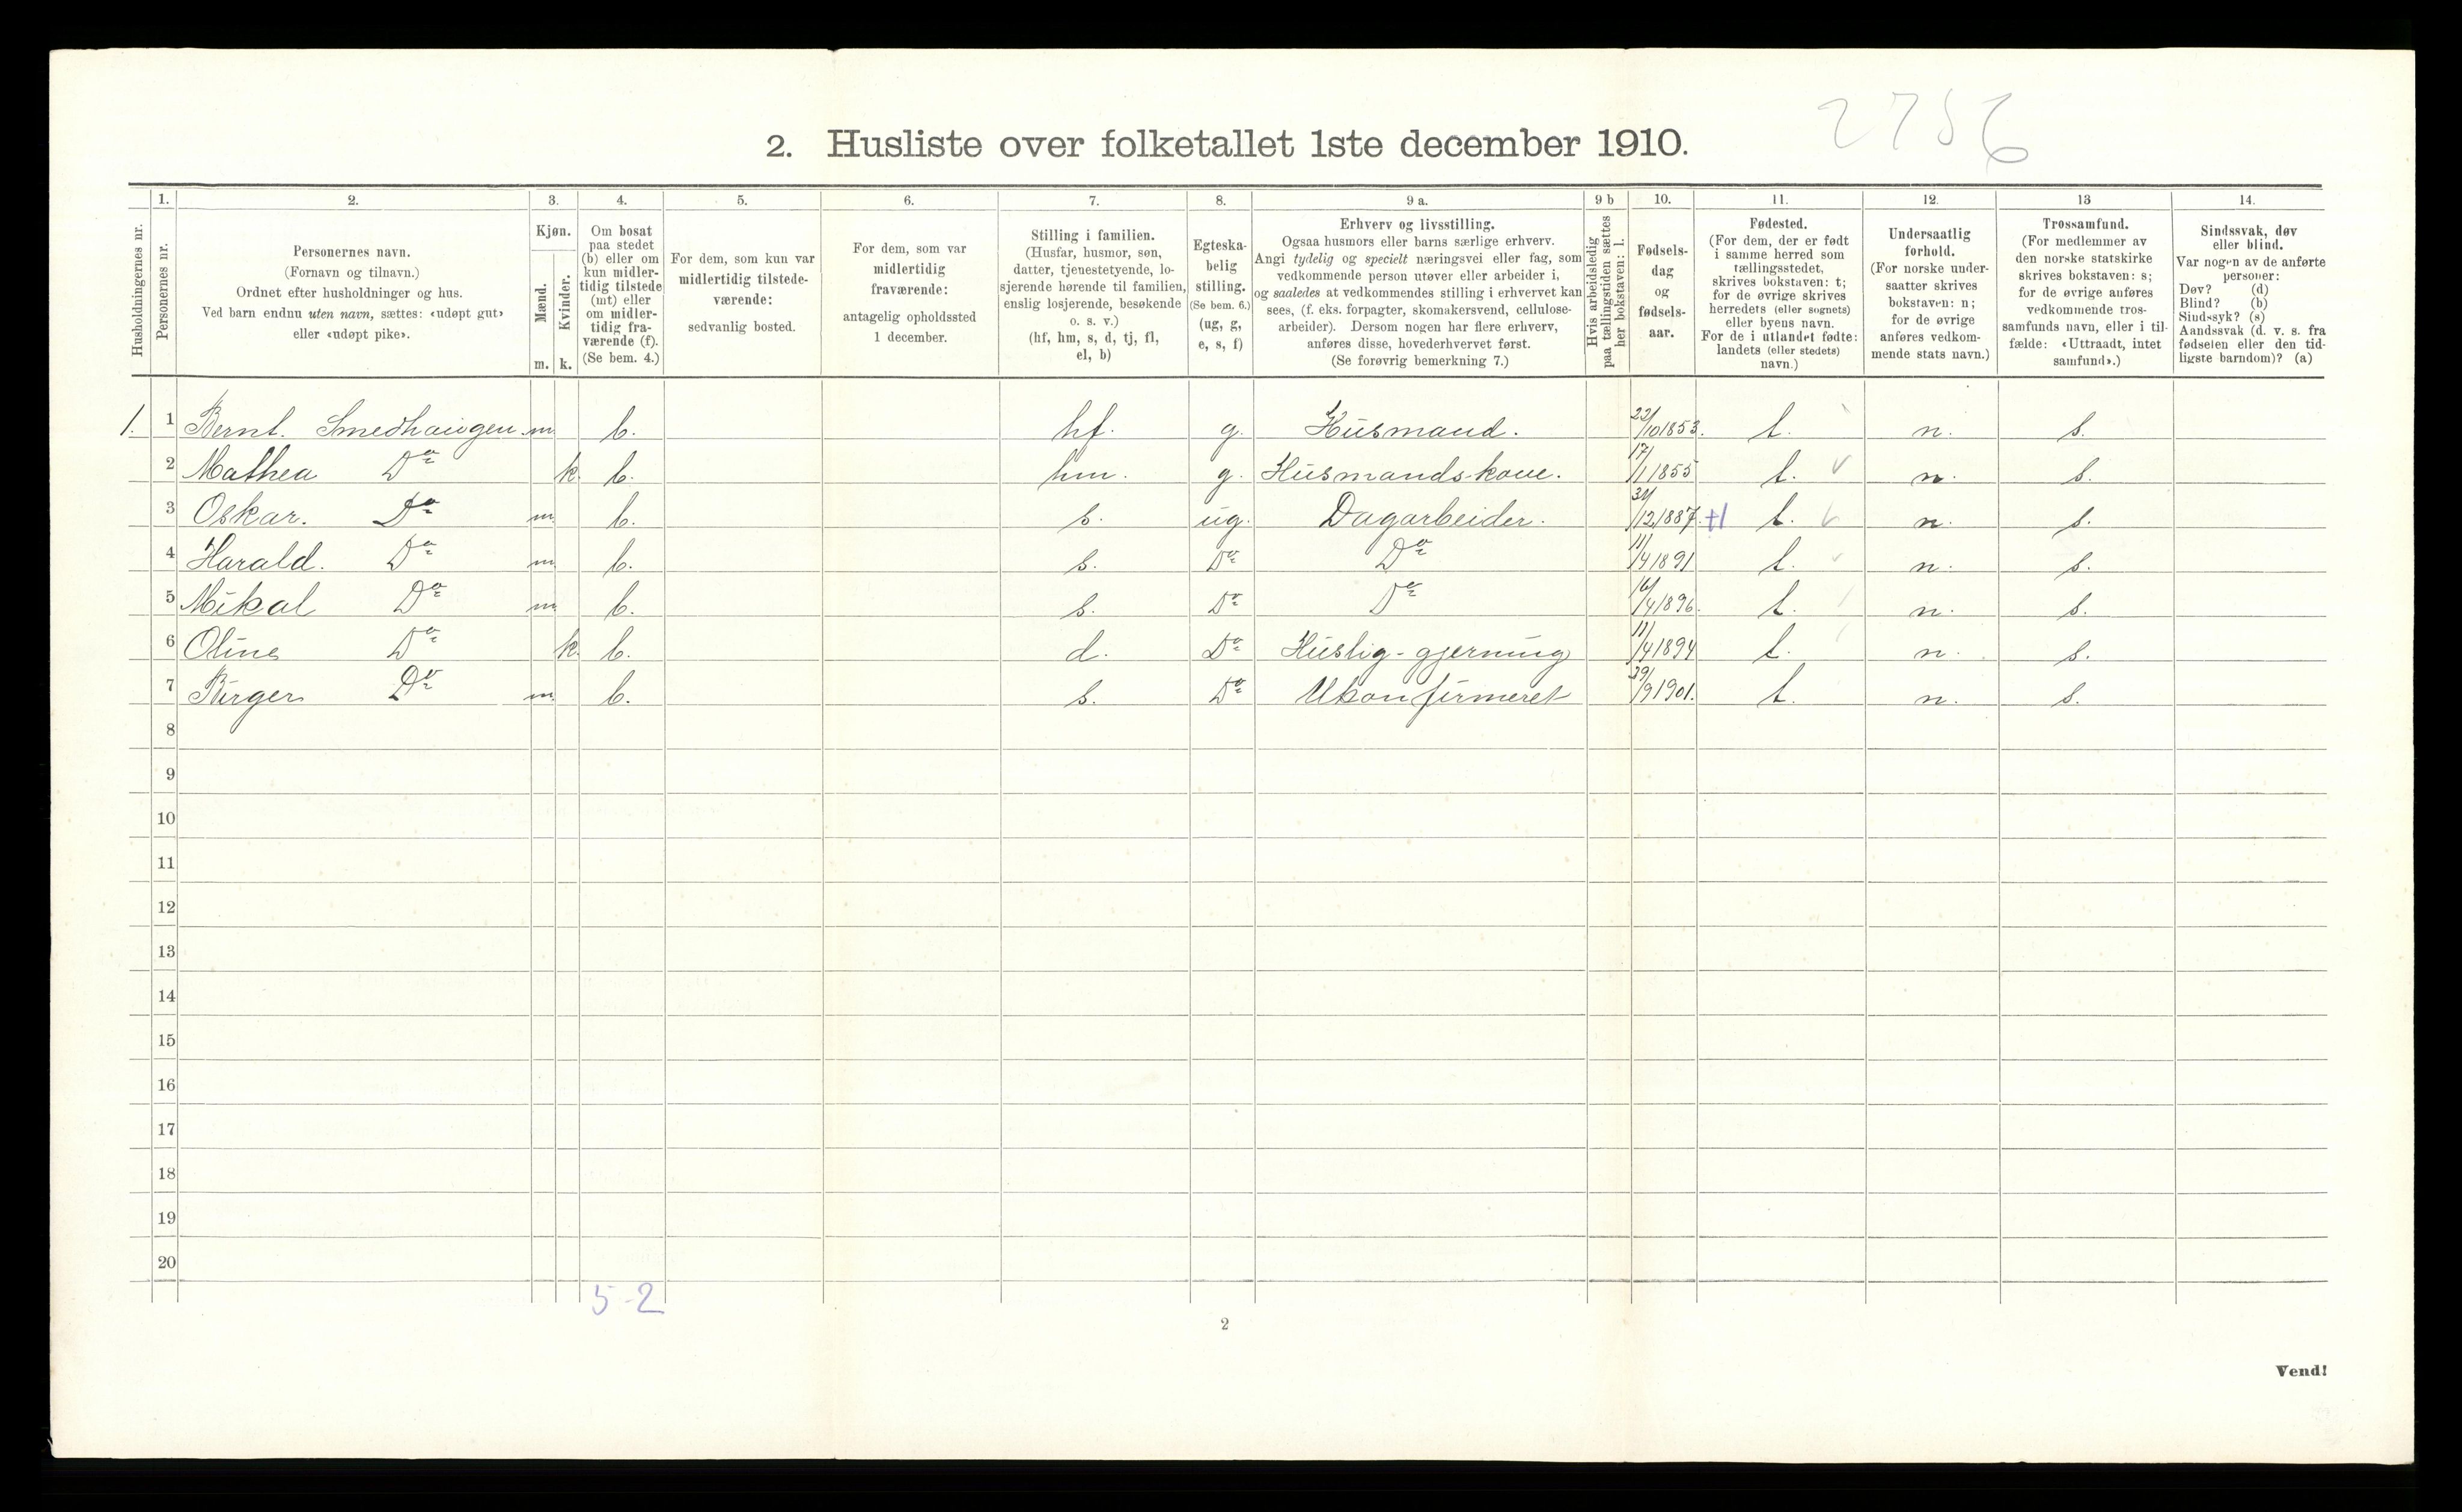 2756
2. Husliste over folketallet 1ste december 1910.
1. 2. 3. 4. 5. 6. 7. 8. 9 a. 9 b 10. 11. 12. 13 14.
Husholdningernes nr.
Personernes nr.
Personernes navn.
(Fornavn og tilnavn.)
Ordnet efter husholdninger og hus.
Ved barn endnu uten navn, sættes: «udøpt gut»
eller «udøpt pike».
Kjøn.
Mænd.
m.
Kvinder.
k.
Om bosat
paa stedet
(b) eller om
kun midler-
tidig tilstede
(mt) eller
om midler-
tidig fra-
værende (f).
(Se bem. 4.)
For dem, som kun var
midlertidig tilstede-
værende:
sedvanlig bosted.
For dem, som var
midlertidig
fraværende:
antagelig opholdssted
1 december.
Stilling i familien.
(Husfar, husmor, søn,
datter, tjenestetyende, lo-
sjerende hørende til familien,
enslig losjerende, besøkende
o. s. v.)
(hf, hm, s, d, tj, fl,
el, b)
Egteska-
belig
stilling.
(Se bem. 6.)
(ug, g,
e, s, f)
Erhverv og livsstilling.
Ogsaa husmors eller barns særlige erhverv.
Angi tydelig og specielt næringsvei eller fag, som
vedkommende person utøver eller arbeider i,
og saaledes at vedkommendes stilling i erhvervet kan
sees, (f. eks. forpagter, skomakersvend, cellulose-
arbeider). Dersom nogen har flere erhverv,
anføres disse, hovederhvervet først.
(Se forøvrig bemerkning 7.)
Hvis arbeidsledig
paa tællingstiden sættes
her bokstaven: l.
Fødsels-
dag
og
fødsels-
aar.
Fødested.
(For dem, der er født
i samme herred som
tællingsstedet,
skrives bokstaven: t;
for de øvrige skrives
herredets (eller sognets)
eller byens navn.
For de i utlandet fødte:
landets (eller stedets)
navn.)
Undersaatlig
forhold.
(For norske under-
saatter skrives
bokstaven: n;
for de øvrige
anføres vedkom-
mende stats navn.)
Trossamfund.
(For medlemmer av
den norske statskirke
skrives bokstaven: s;
for de øvrige anføres
vedkommende tros-
samfunds navn, eller i til-
fælde: «Uttraadt, intet
samfund».)
Sindssvak, døv
eller blind.
Var nogen av de anførte
personer:
Døv? (d)
Blind? (b)
Sindssyk? (s)
Aandssvak (d. v. s. fra
fødselen eller den tid-
ligste barndom)? (a)
1. 1 Bernt. Smedhaugen m. b. hf. g. Husmand. 22/10 1853. t. n. s.
2 Mathea Do k. b. hm. g. Husmandskone. 17/1 1855 t. n. s.
3 Oskar. Do m. b. s. ug. Dagarbeider. 31/12 1887. +1 t. n. s.
4 Harald. Do m. b. s. Do Do 11/4 1891 t. n. s.
5 Mikal Do m b. s. Do Do 16/4 1896. t. n. s.
6 Oline Do k. b. d. Do Huslig-gjerning 11/4 1894 t. n. s.
7 Birger Do m. b. s. Do Ukonfirmeret 29/9 1901. t. n. s.
8
9
10
11
12
13
14
15
16
17
18
19
20
5-2
2
Vend!